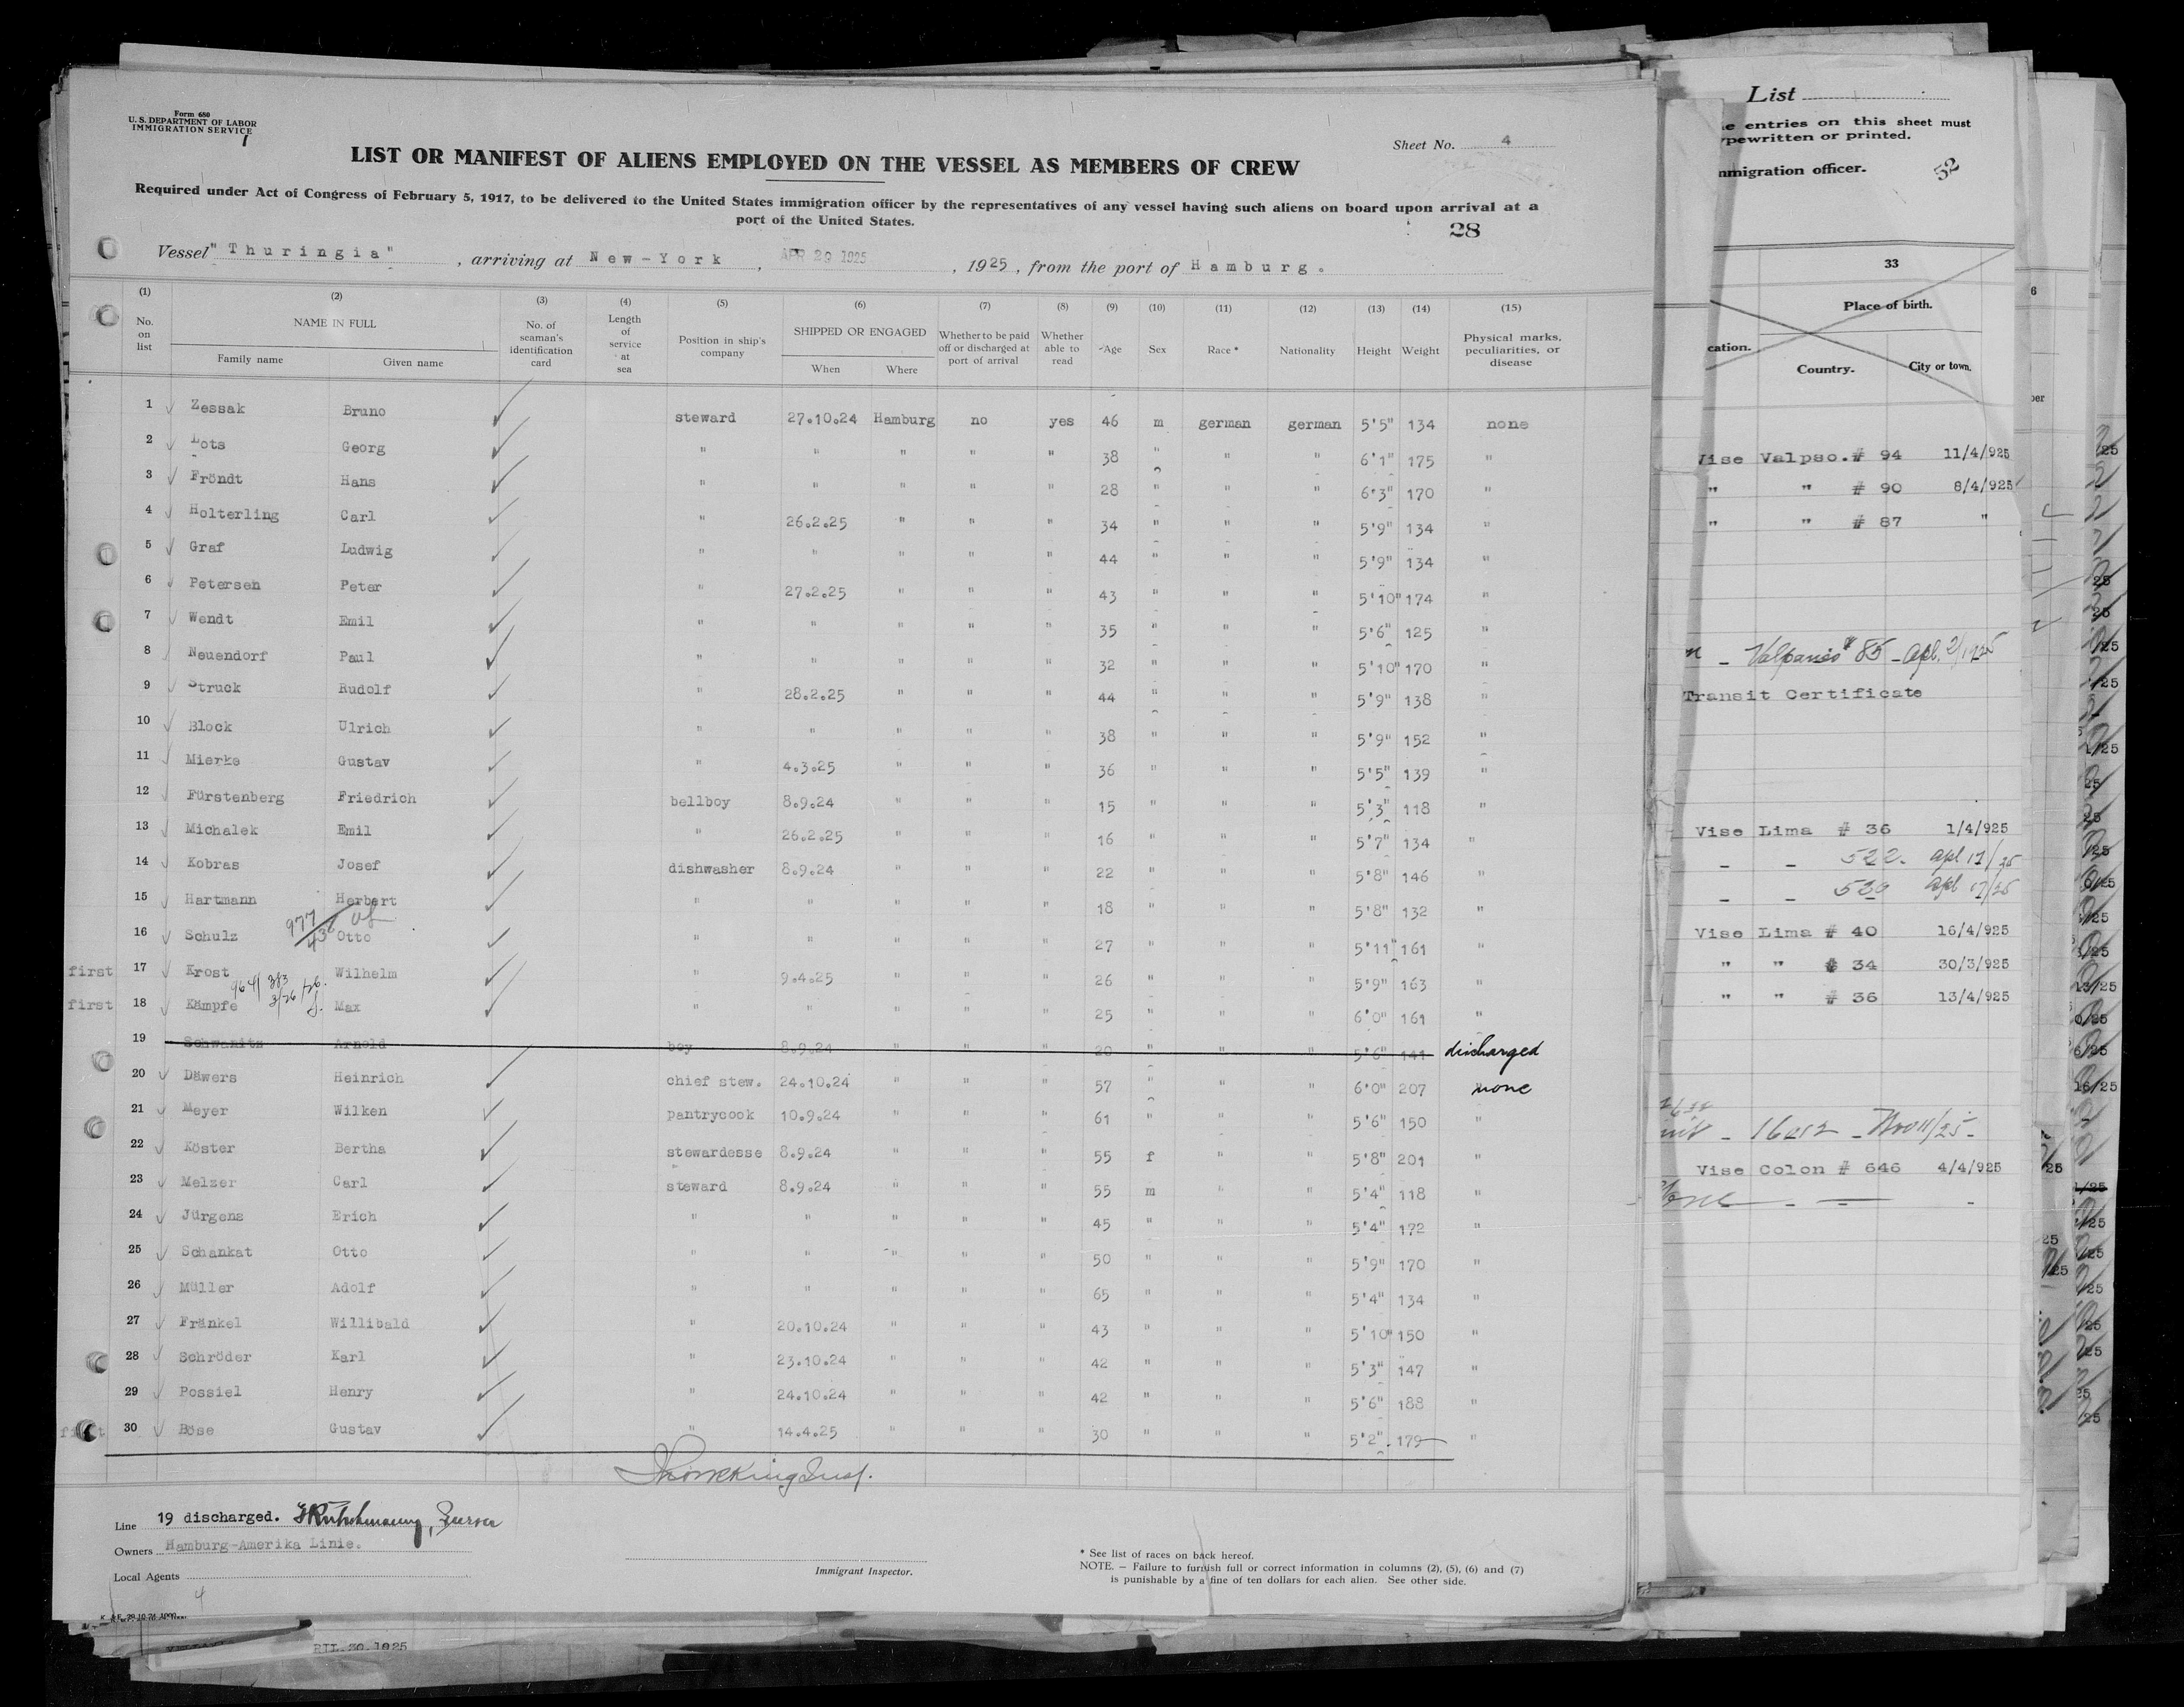 Form 680
U. S. DEPARTMENT OF LABOR
IMMIGRATION SERVICE
Sheet No. 4
LIST OR MANIFEST OF ALIENS EMPLOYED ON THE VESSEL AS MEMBERS OF CREW
Required under Act of Congress of February 5, 1917, to be delivered to the United States immigration officer by the representatives of any vessel having such aliens on board upon arrival at a
port of the United States.
28
Vessel "Thuringia", arriving at New-York, APR 29 1925, 1925, from the port of Hamburg.
(1) (2) (3) (4) (5) (6) (7) (8) (9) (10) (11) (12) (13) (14) (15)
No. on list
NAME IN FULL
Family name Given name
No. of seaman's identification card
Length of service at sea
Position in ship's company
SHIPPED OR ENGAGED
When Where
Whether to be paid off or discharged at port of arrival
Whether able to read
Age
Sex
Race *
Nationality
Height
Weight
Physical marks, peculiarities, or disease
1 Zessak Bruno steward 27.10.24 Hamburg no yes 46 m german german 5'5" 134 none
2 Lots Georg " " " " " 38 " " " 6'1" 175 "
3 Fröndt Hans " " " " " 28 " " " 6'3" 170 "
4 Holterling Carl " 26.2.25 " " " 34 " " " 5'9" 134 "
5 Graf Ludwig " " " " " 44 " " " 5'9" 134 "
6 Petersen Peter " 27.2.25 " " " 43 " " " 5'10" 174 "
7 Wendt Emil " " " " " 35 " " " 5'6" 125 "
8 Neuendorf Paul " " " " " 32 " " " 5'10" 170 "
9 Struck Rudolf " 28.2.25 " " " 44 " " " 5'9" 138 "
10 Block Ulrich " " " " " 38 " " " 5'9" 152 "
11 Mierke Gustav " 4.3.25 " " " 36 " " " 5'5" 139 "
12 Fürstenberg Friedrich bellboy 8.9.24 " " " 15 " " " 5'3" 118 "
13 Michalek Emil " 26.2.25 " " " 16 " " " 5'7" 134 "
14 Kobras Josef dishwasher 8.9.24 " " " 22 " " " 5'8" 146 "
15 Hartmann Herbert " " " " " 18 " " " 5'8" 132 "
977
436
16 Schulz Otto " " " " " 27 " " " 5'11" 161 "
first 17 Krost Wilhelm " 9.4.25 " " " 26 " " " 5'9" 163 "
964/383
3/26/26.
first 18 Kämpfe Max " " " " " 25 " " " 6'0" 161 "
19 Schwanitz Arnold boy 8.9.24 " " " 20 " " " 5'6" 141 discharged
20 Däwers Heinrich chief stew. 24.10.24 " " " 57 " " " 6'0" 207 none
21 Meyer Wilken pantrycook 10.9.24 " " " 61 " " " 5'6" 150 "
22 Köster Bertha stewardesse 8.9.24 " " " 55 f " " 5'8" 201 "
23 Melzer Carl steward 8.9.24 " " " 55 m " " 5'4" 118 "
24 Jürgens Erich " " " " " 45 " " " 5'4" 172 "
25 Schankat Otto " " " " " 50 " " " 5'9" 170 "
26 Müller Adolf " " " " " 65 " " " 5'4" 134 "
27 Fränkel Willibald " 20.10.24 " " " 43 " " " 5'10" 150 "
28 Schröder Karl " 23.10.24 " " " 42 " " " 5'3" 147 "
29 Possiel Henry " 24.10.24 " " " 42 " " " 5'6" 188 "
first 30 Böse Gustav " 14.4.25 " " " 30 " " " 5'2" 179 "
Line 19 discharged.
Owners Hamburg-Amerika Linie.
Local Agents
4
Immigrant Inspector.
* See list of races on back hereof.
NOTE. — Failure to furnish full or correct information in columns (2), (5), (6) and (7)
is punishable by a fine of ten dollars for each alien. See other side.
RIL.30.1925
List
e entries on this sheet must
ypewritten or printed.
mmigration officer.
52
33
Place of birth.
cation.
Country. City or town.
Vise Valpso. # 94 11/4/925
" " # 90 8/4/925
" " # 87 "
Transit Certificate
Vise Lima # 36 1/4/925
522. apl 17/25
520 apl 17/25
Vise Lima # 40 16/4/925
" " # 34 30/3/925
" " # 36 13/4/925
Vise Colon # 646 4/4/925